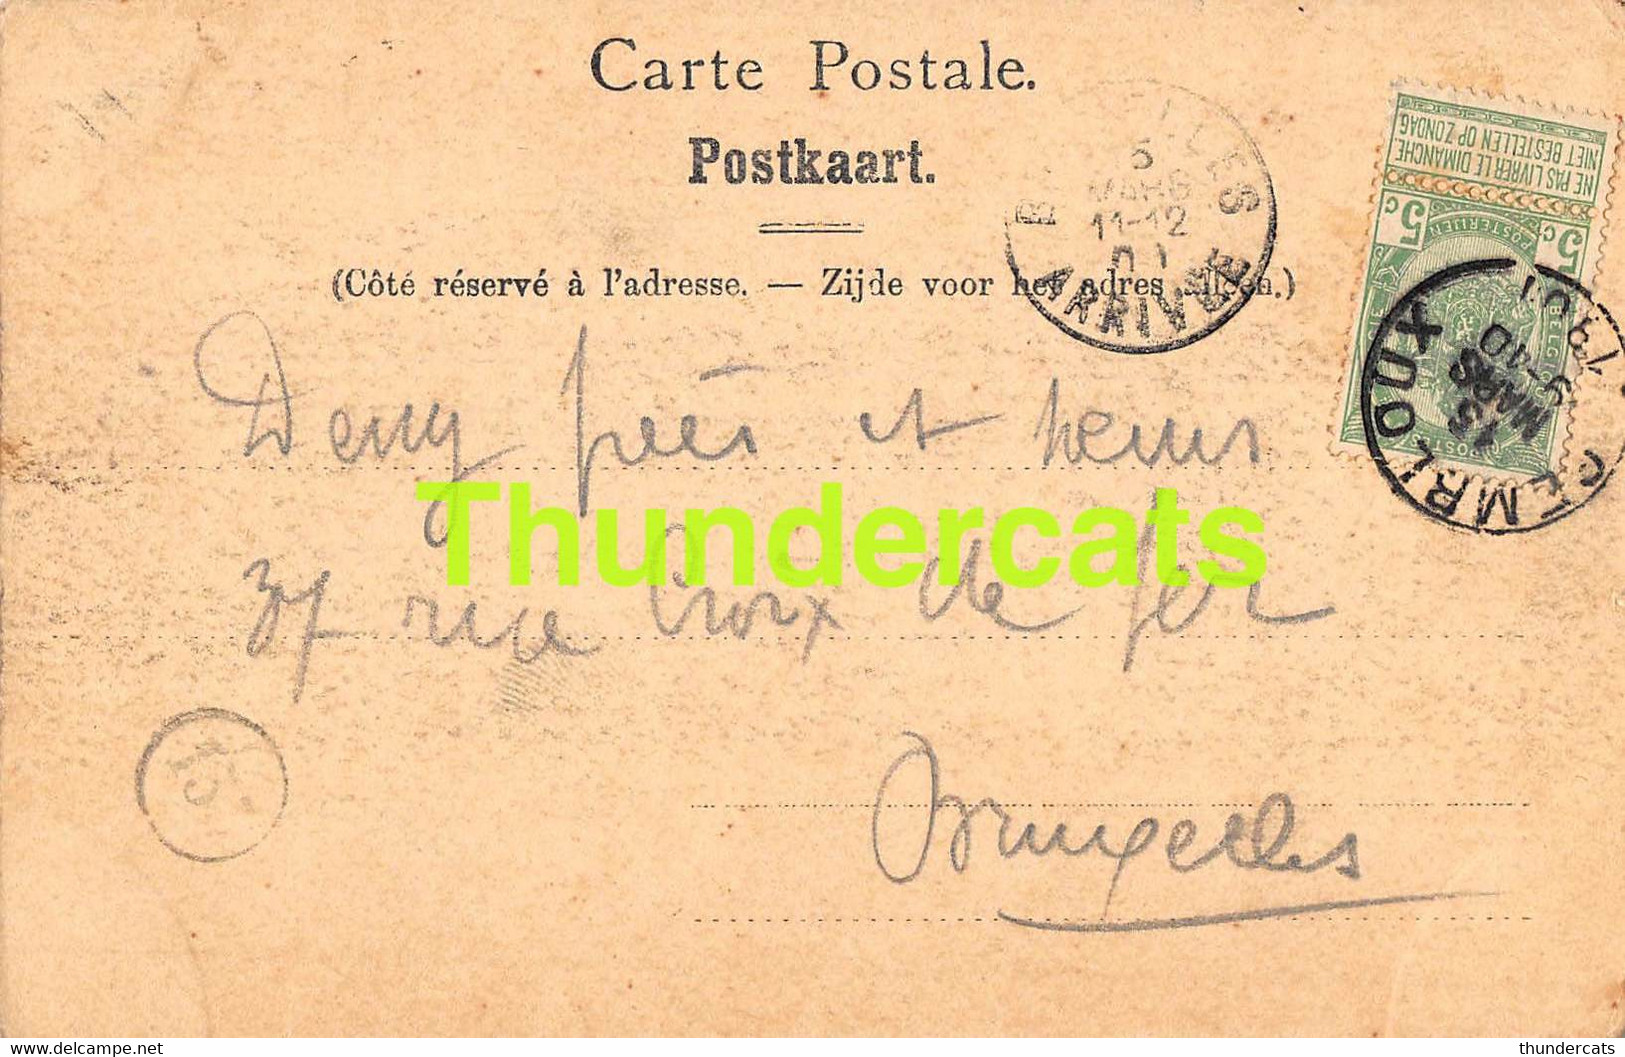 Carte Postale.
Postkaart.
(Côté réservé à l'adresse. — Zijde voor het adres alleen.)
NE PAS LIVRER LE DIMANCHE
NIET BESTELLEN OP ZONDAG
5c 5c
POSTERIJEN
GEMBLOUX
5
MARS
9-10
1901
5
MARS
11-12
ARRIVÉE
Deny frères et sœurs
37 rue Croix de fer
Bruxelles
15
Thundercats
thundercats
thundercats